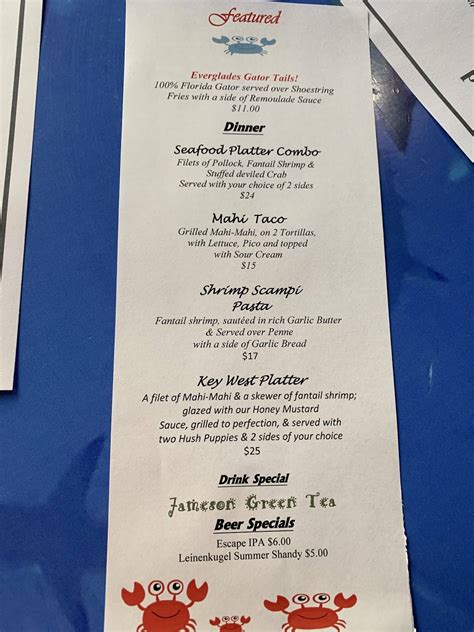 Featured
Everglades Gator Tails!
100% Florida Gator served over Shoestring
Fries with a side of Remoulade Sauce
$11.00
Dinner
Seafood Platter Combo
Filets of Pollock, Fantail Shrimp &
Stuffed deviled Crab
Served with your choice of 2 sides
$24
Mahi Taco
Grilled Mahi-Mahi, on 2 Tortillas,
with Lettuce, Pico and topped
with Sour Cream
$15
Shrimp Scampi
Pasta
Fantail shrimp, sautéed in rich Garlic Butter
& Served over Penne
with a side of Garlic Bread
$17
Key West Platter
A filet of Mahi-Mahi & a skewer of fantail shrimp;
glazed with our Honey Mustard
Sauce, grilled to perfection, & served with
two Hush Puppies & 2 sides of your choice
$25
Drink Special
Jameson Green Tea
Beer Specials
Escape IPA $6.00
Leinenkugel Summer Shandy $5.00